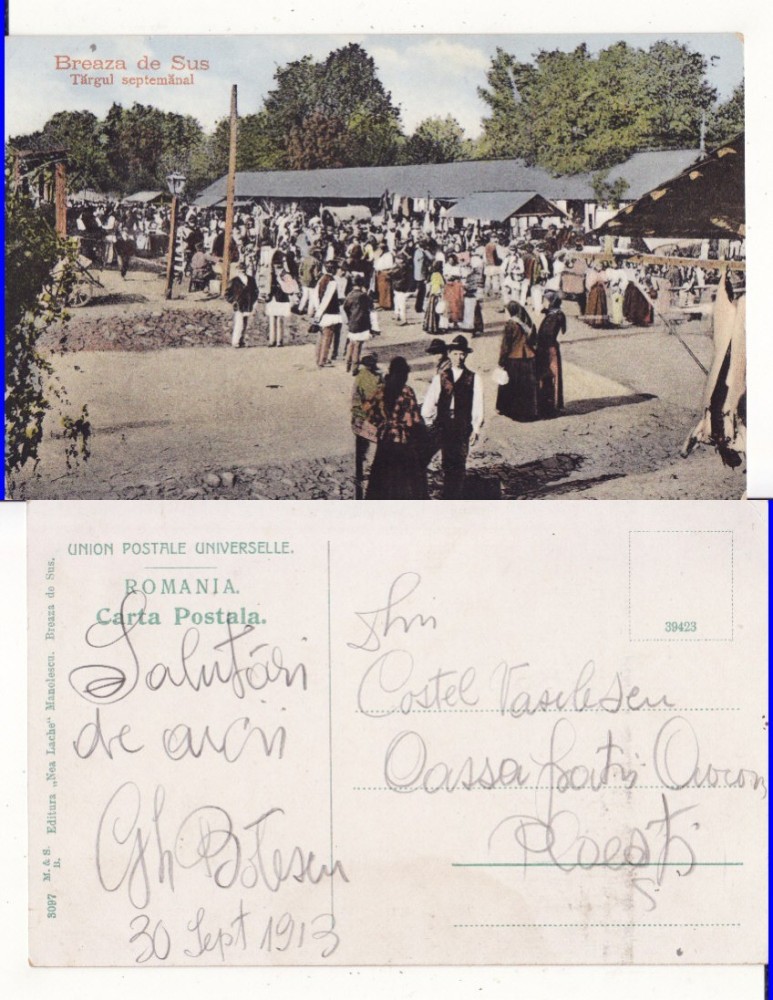 Breaza de Sus
Târgul septemănal
UNION POSTALE UNIVERSELLE.
ROMANIA.
Carta Postala.
39423
3097 M. & S. B. Editura „Nea Lache" Manolescu. Breaza de Sus.
Salutări
de aici
Gh
30 Sept 1913
Costel Vasilescu
Cassa
Ploesti